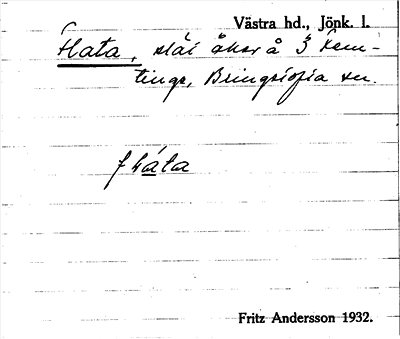 Västra hd., Jönk. l.
Flata, slät åker å 3 hem-
tings, Bringsiofia sn.
flàta
Fritz Andersson 1932.